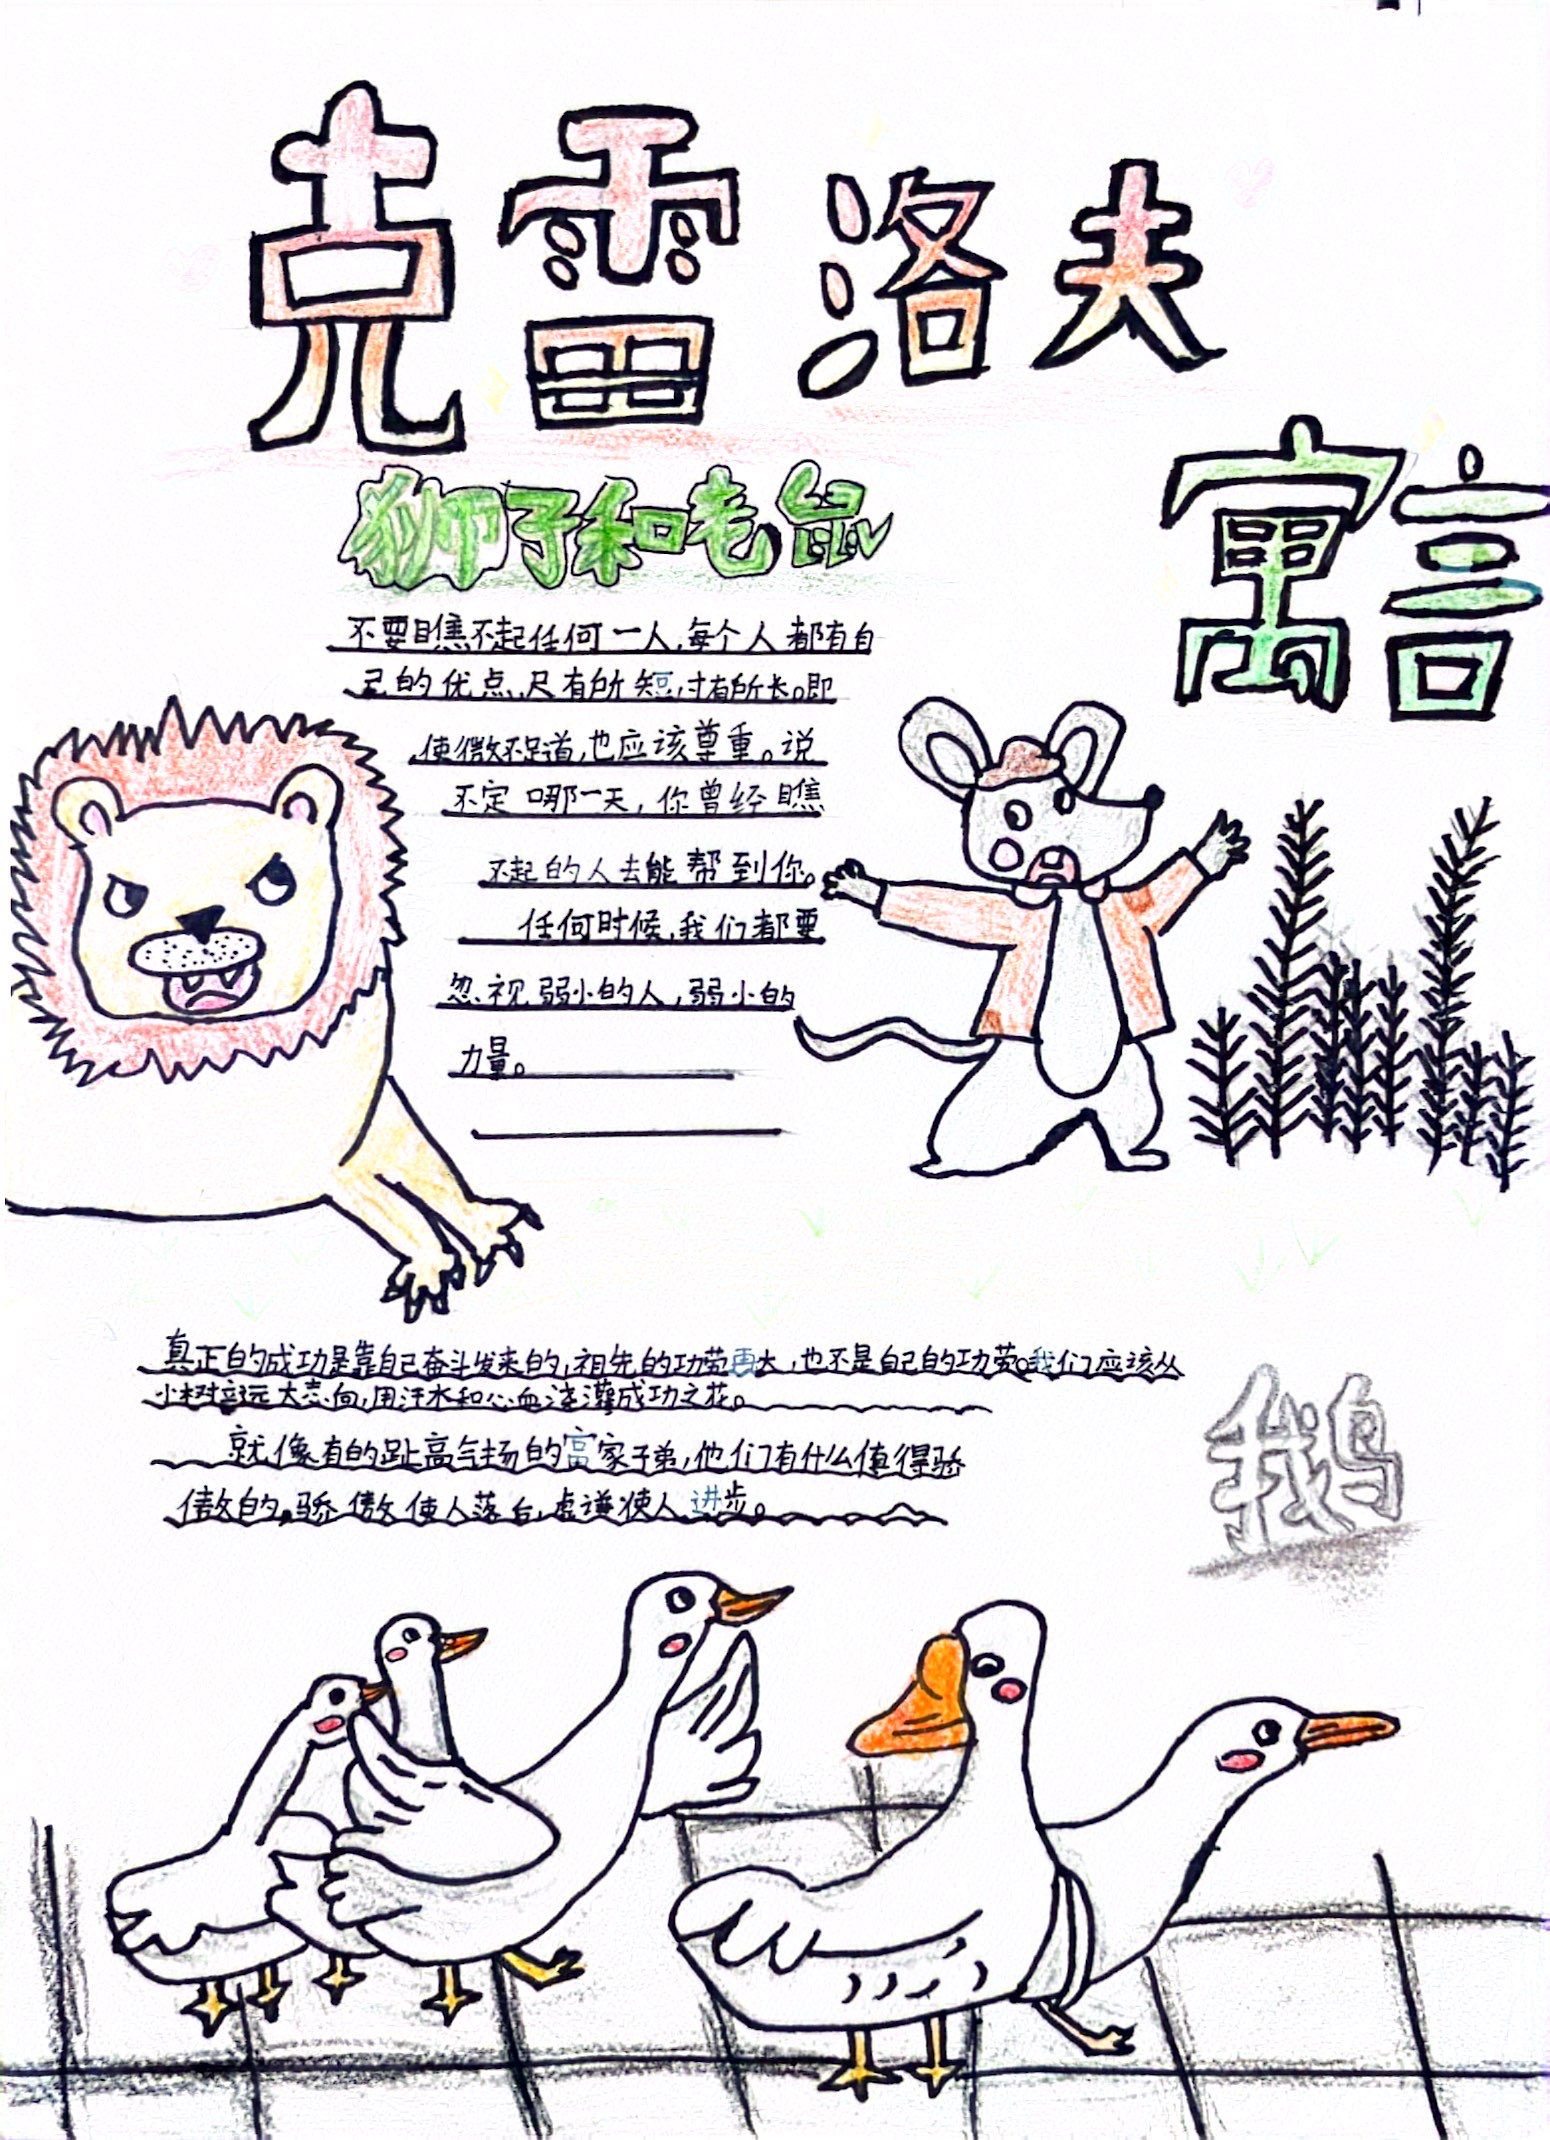 克雷洛夫
寓言
狮子和老鼠
不要瞧不起任何一人,每个人都有自
己的优点,尺有所短,寸有所长。即
使微不足道,也应该尊重。说
不定哪一天,你曾经瞧
不起的人去能帮到你。
任何时候,我们都要
忽视弱小的人,弱小的
力量。
真正的成功是靠自己奋斗发来的,祖先的功劳再大,也不是自己的功劳。我们应该从
小树立远大志向,用汗水和心血浇灌成功之花。
就像有的趾高气扬的富家子弟,他们有什么值得骄
傲的。骄傲使人落后,虚谦使人进步。
鹅